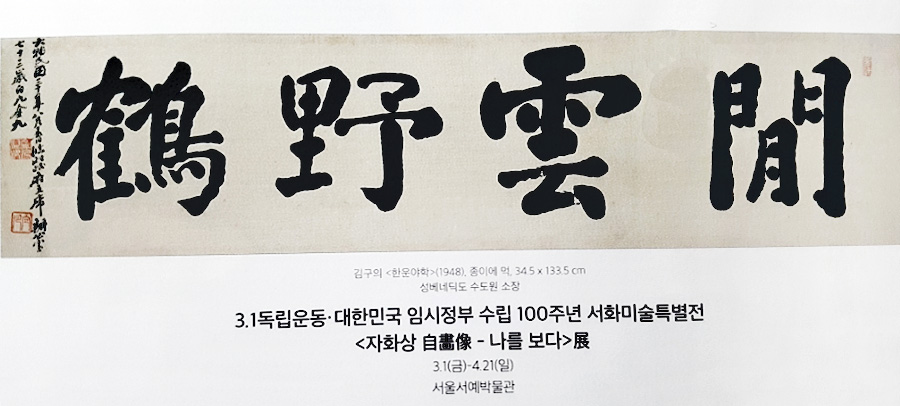 閒雲野鶴
大韓民國三十年八月
七十三歲白凡金九
김구의 <한운야학>(1948), 종이에 먹, 34.5 x 133.5 cm
성베네딕도 수도원 소장
3.1독립운동·대한민국 임시정부 수립 100주년 서화미술특별전
<자화상 自畵像 - 나를 보다>展
3.1(금)-4.21(일)
서울서예박물관